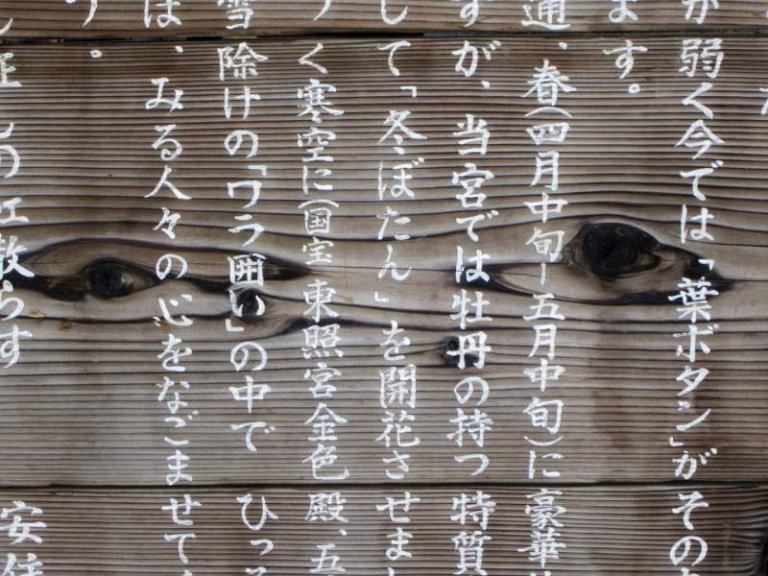 が弱く今では「葉ボタン」がその
ます。
通、春(四月中旬ー五月中旬)に豪華
すが、当宮では牡丹の持つ特質
して「冬ぼたん」を開花させまし
く寒空に(国宝東照宮金色殿、五
雪除けの「ワラ囲い」の中でひっそ
は、みる人々の心をなごませて
す。
散らす
安住